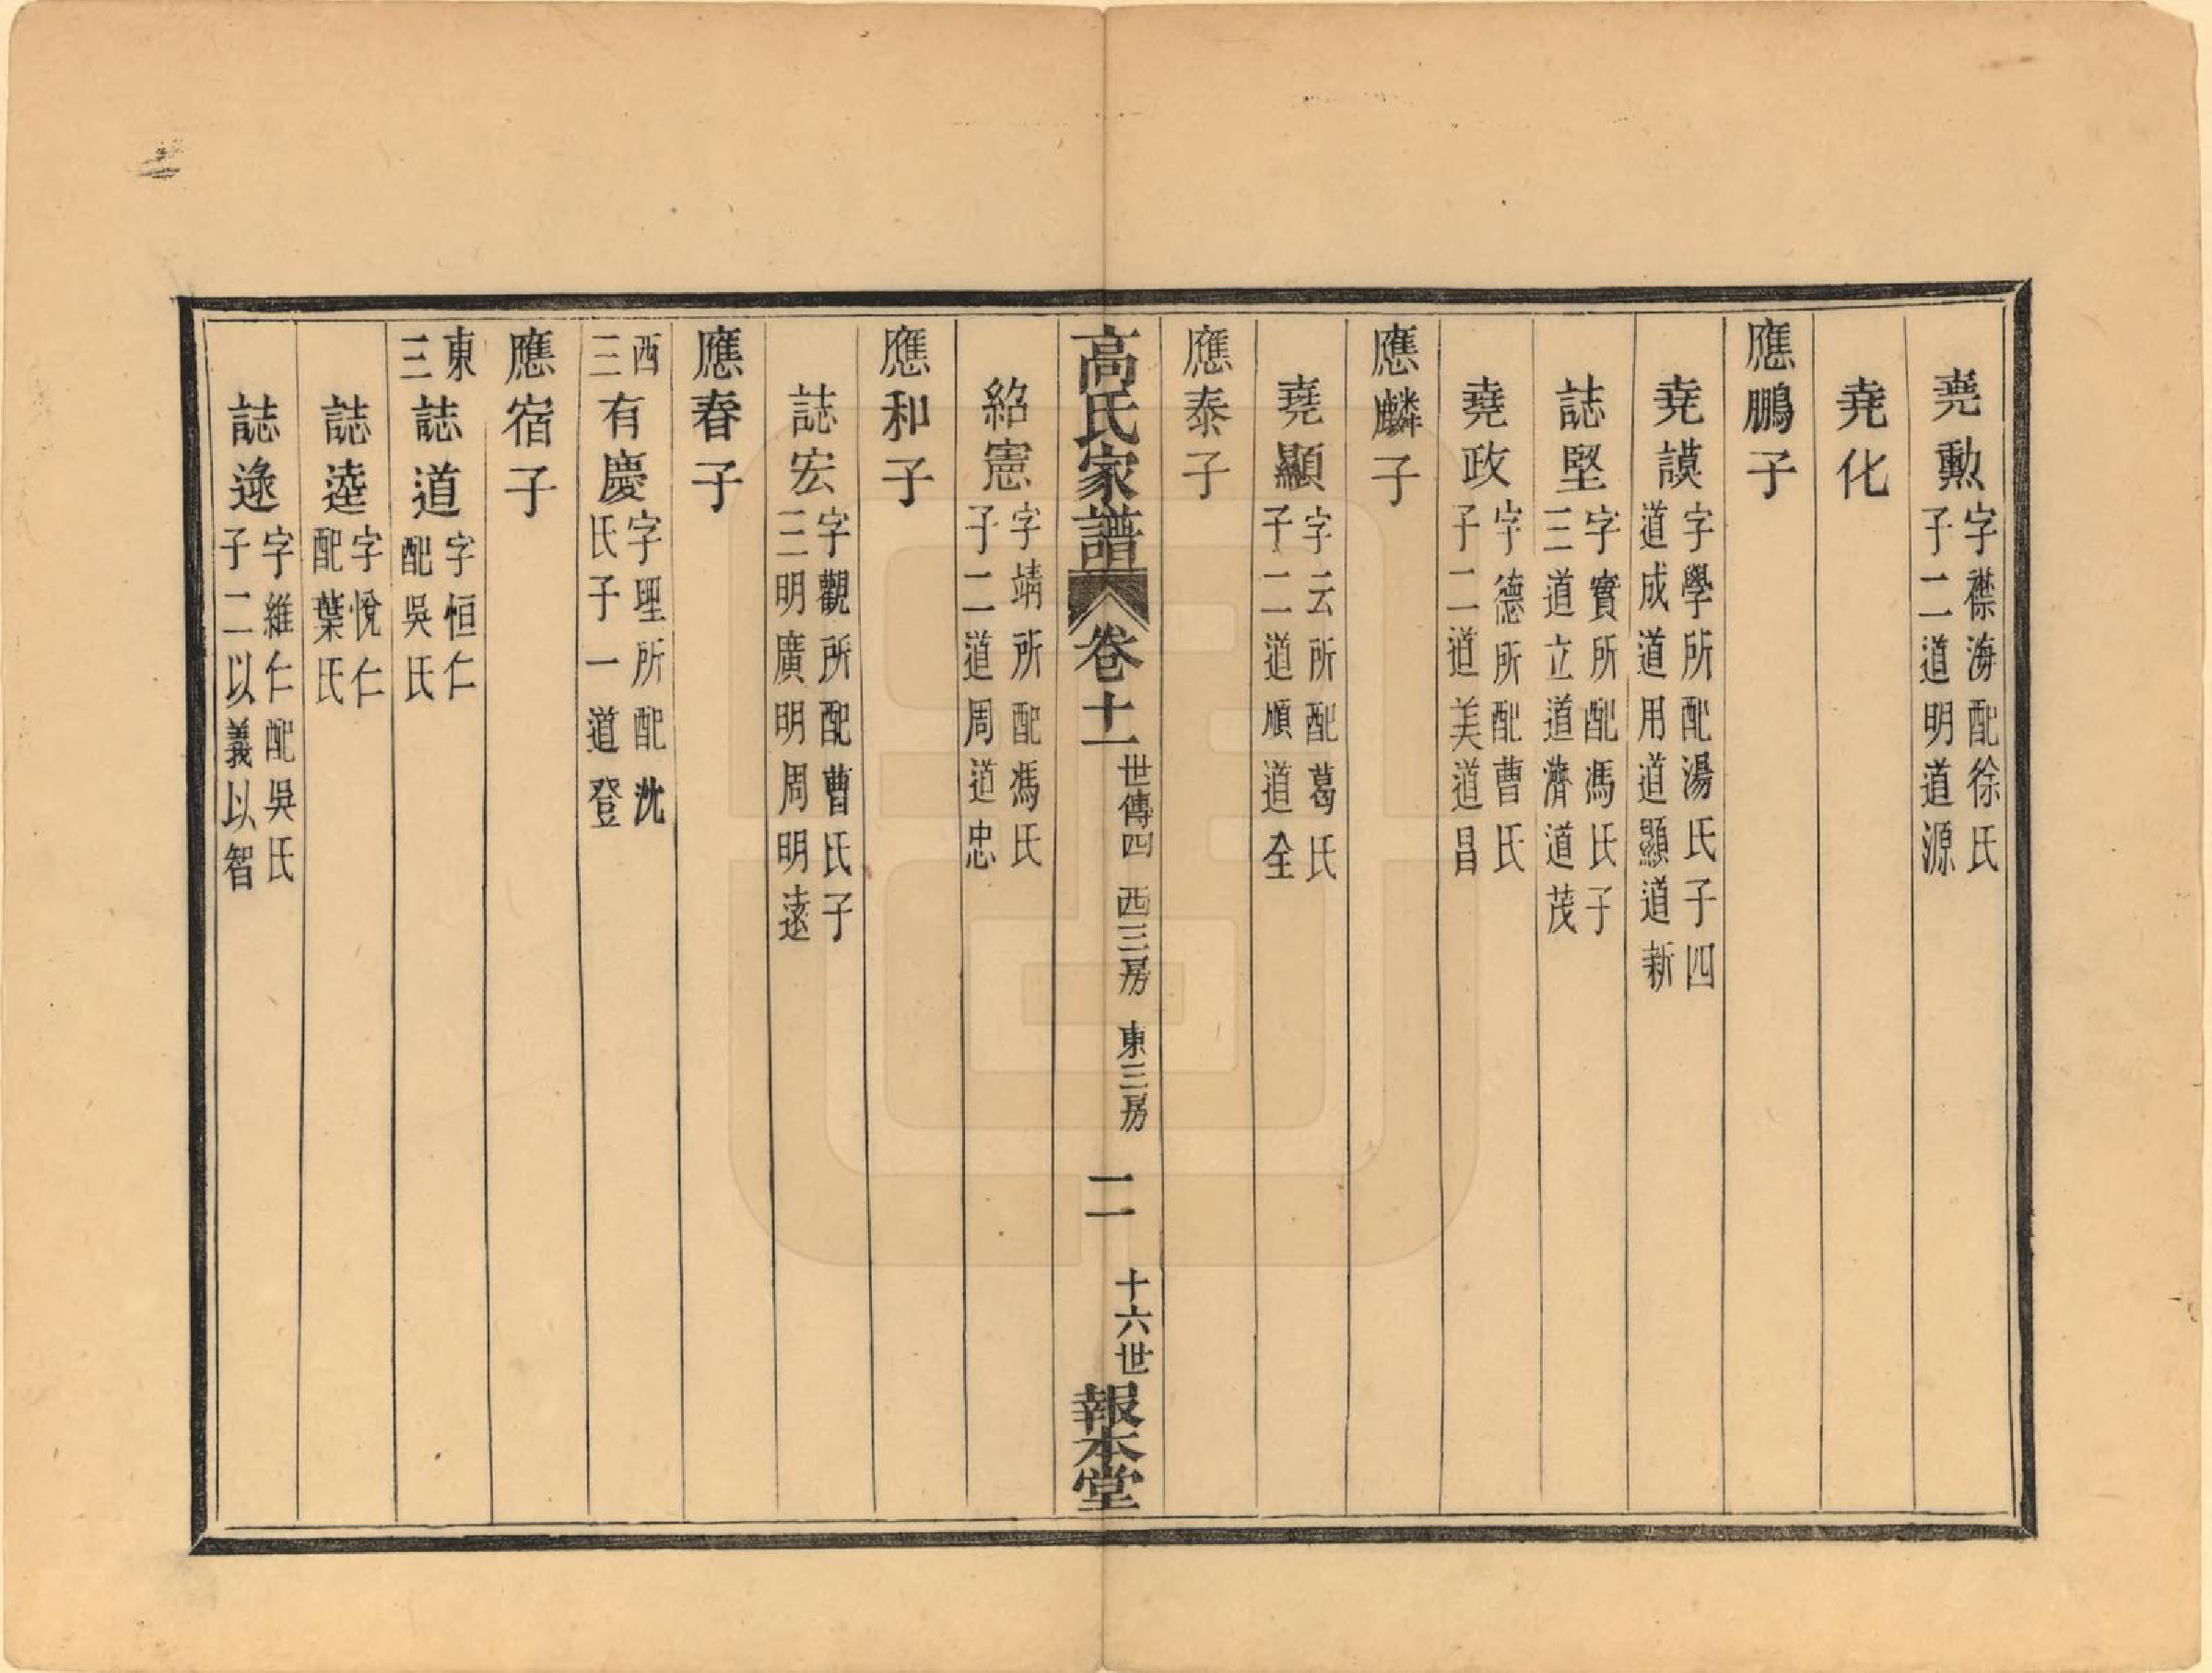 堯勳 字襟海配徐氏
子二道明道源
堯化
應鵬子
堯謨 字學所配湯氏子四
道成道用道顯道新
誌堅 字實所配馮氏子
三道立道濟道茂
堯政 字德所配曹氏
子二道美道昌
應麟子
堯顯 字云所配葛氏
子二道順道全
應泰子
高氏家譜 卷十一 世傳四 西三房 東三房 二 十六世 報本堂
紹憲 字靖所配馮氏
子二道周道忠
應和子
誌宏 字觀所配曹氏子
三明廣明周明遠
應春子
西三 有慶 字聖所配沈
氏子一道登
應宿子
東三 誌道 字恒仁
配吳氏
誌逵 字悅仁
配葉氏
誌逵 字維仁配吳氏
子二以義以智